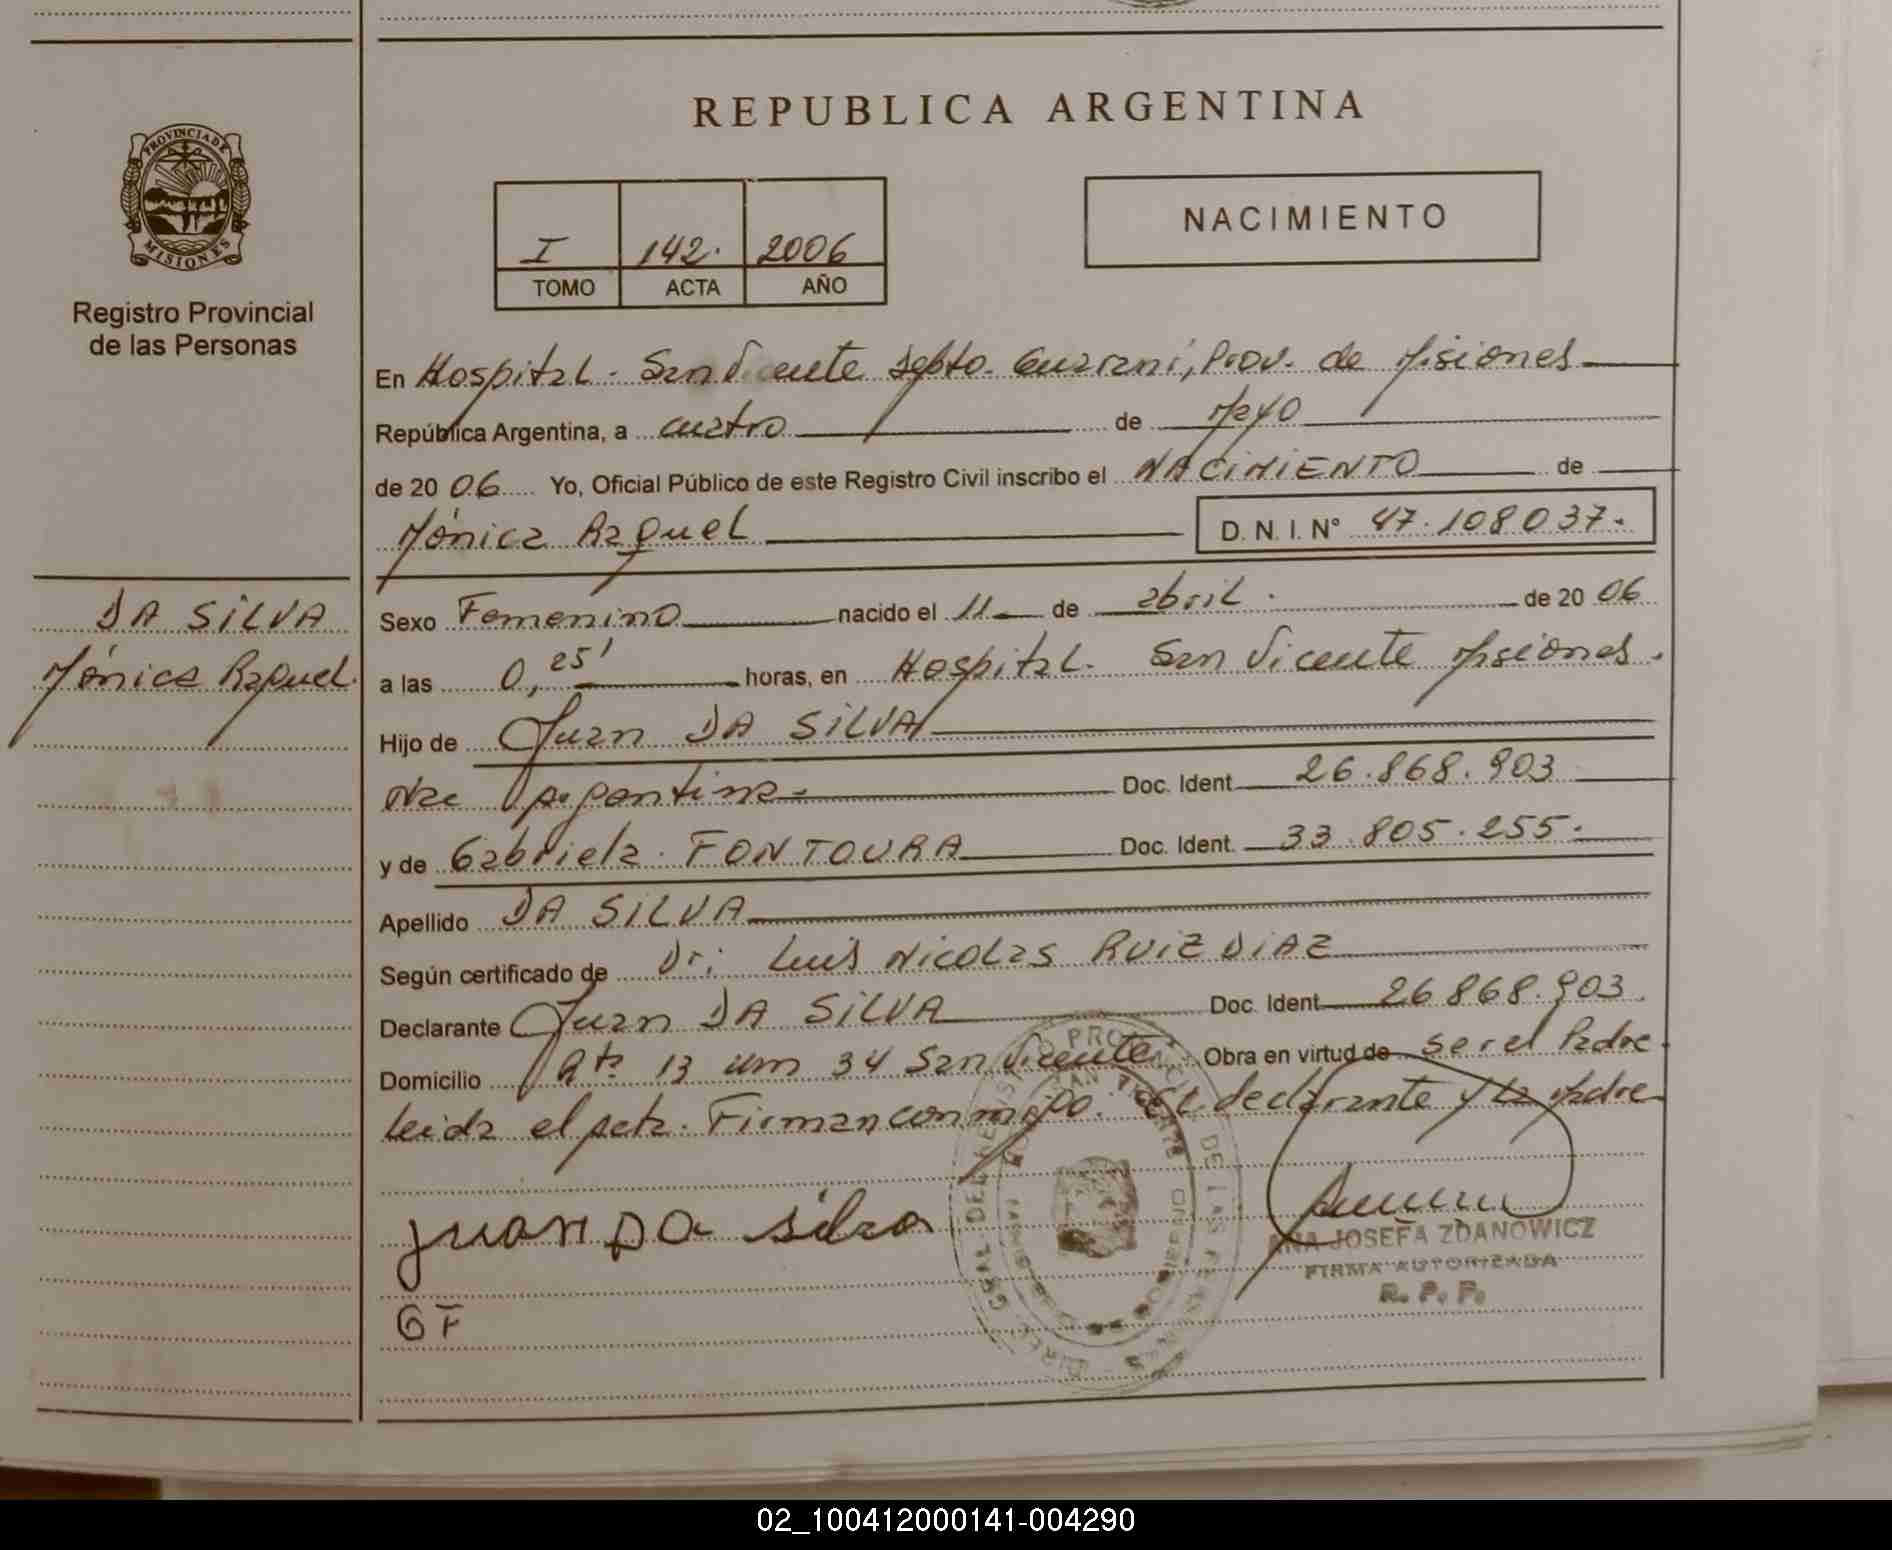 PROVINCIA DE
MISIONES
Registro Provincial
de las Personas
REPUBLICA ARGENTINA
I 142. 2006
TOMO ACTA AÑO
NACIMIENTO
En Hospital. San Vicente Depto. Guaraní, Prov. de Misiones
República Argentina, a cuatro de Mayo
de 2006 Yo, Oficial Público de este Registro Civil inscribo el NACIMIENTO de
Mónica Raquel D. N. I. N° 47.108037.
DA SILVA
Mónica Raquel.
Sexo Femenino nacido el 11 de abril. de 2006
a las 0,25' horas, en Hospital. San Vicente Misiones.
Hijo de Juan DA SILVA
Nac Argentina Doc. Ident. 26.868.903
y de Gabriela. FONTOURA Doc. Ident. 33.805.255.
Apellido DA SILVA
Según certificado de Dr; Luis Nicolas RUIZ DIAZ
Declarante Juan DA SILVA Doc. Ident. 26868.903.
Domicilio Rta 13 Km 34 San Vicente Obra en virtud de ser el Padre.
Leida el acta. Firman conmigo. El declarante y la Madre
juan DA silva
GF
ANA JOSEFA ZDANOWICZ
FIRMA AUTORIZADA
R. P. P.
02_100412000141-004290